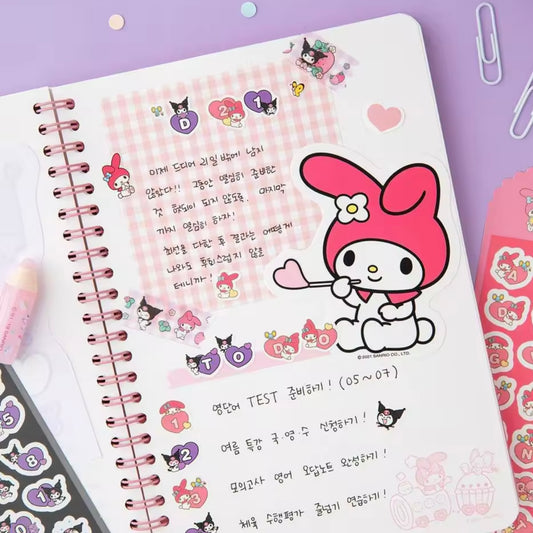 D 21
이제 드디어 21일밖에 남지
않았다!! 그동안 열심히 준비한
것 헛되이 되지 않도록. 마지막
까지 열심히 하자!
최선을 다한 후 결과는 어떻게
나와도 후회스럽지 않을
테니까!
©2021 SANRIO CO., LTD.
TO DO
1 영단어 TEST 준비하기! (05~07)
2 여름 특강 국·영·수 신청하기!
3 모의고사 영어 오답노트 완성하기!
체육 수행평가 줄넘기 연습하기!